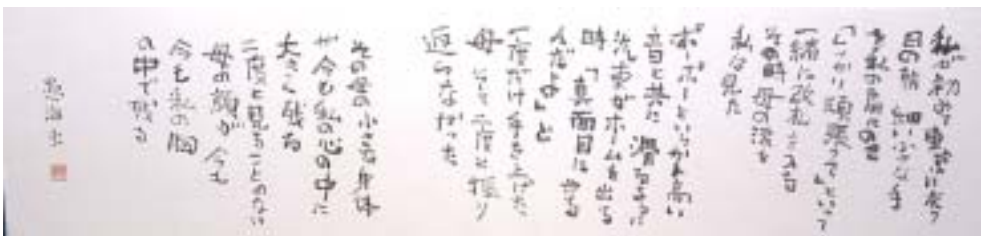 私が初めて東京に発つ
日の朝 細い小さな手
を私の肩にのせ
「しっかり頑張って」といって
一緒に改札に入る
その時 母の涙を
私は見た
ポーポーという かん高い
音と共に 滑るように
汽車がホームを出る
時 「真面目に やる
んだよ」と
一度だけ手を上げた
母 そして二度と振り
返らなかった
その母の小さな身体
が 今も私の心の中に
大きく残る
二度と見ることのない
母の顔が 今も
今も私の胸
の中で残る